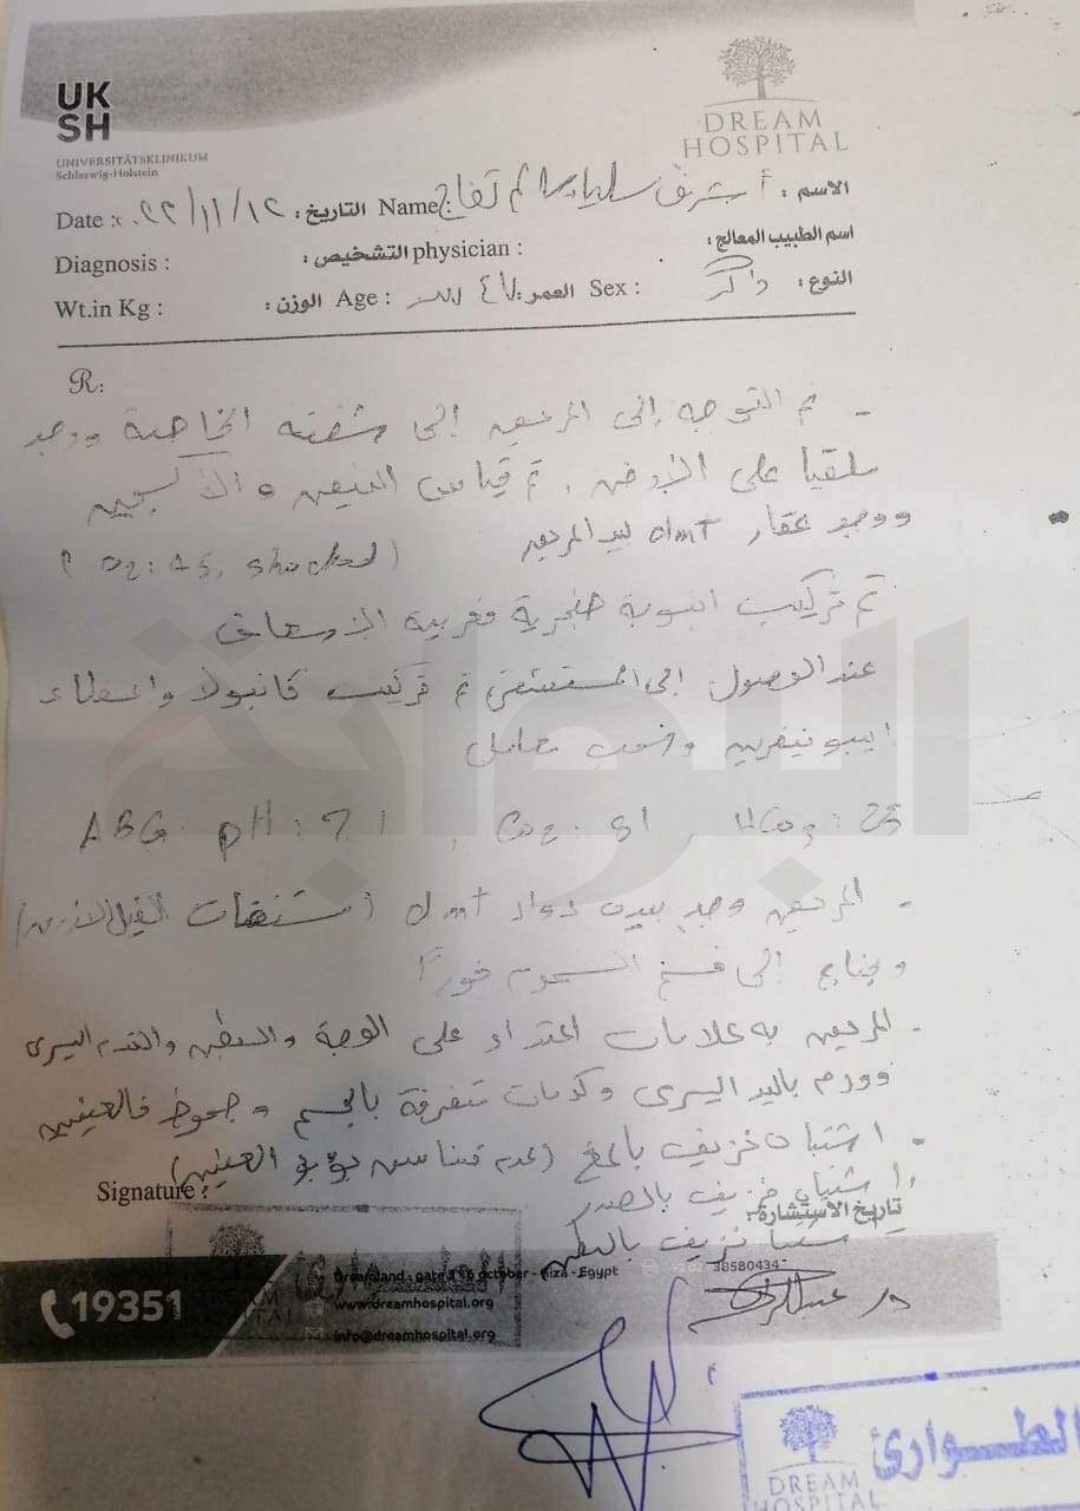 UK
SH
UNIVERSITÄTSKLINIKUM
Schleswig-Holstein
DREAM
HOSPITAL
الاسم : أشرف
Name : تفاحة
التاريخ : ٢٠٢٢/١١/١٢
Date :
اسم الطبيب المعالج :
physician :
التشخيص :
Diagnosis :
النوع : ذكر
Sex :
العمر : ٤٧
Age :
الوزن :
Wt.in Kg :
R:
- تم التوجه إلى المريض إلى شقته الخاصة ووجد
ملقيا على الأرض ، تم قياس النبض والأكسجين
ووجد عقار dmt بيد المريض
( O2 : 45, shocked )
تم تركيب انبوبة حنجرية بعربية الإسعاف
عند الوصول إلى المستشفى تم تركيب كانيولا واعطاء
ايبونيفرين وسحب معامل
ABG pH : 7.1 , CO2 : 81 , HCO3 : 25
- المريض وجد بيده دواء dmt (مشتقات الفيل الازرق)
ويحتاج الى السموم فورًا
- المريض به علامات اعتداء على الوجة والبطن والقدم اليسرى
وورم باليد اليسرى وكدمات متفرقة بالجسم وجحوظ فالعينين
- اشتباه نزيف بالمخ (عدم تناسق بؤبؤ العينين)
- اشتباه نزيف بالصدر
اشتباه نزيف بالبطن
Signature :
تاريخ الاستشارة :
19351
Dreamland - gate 3 - 6 october - Giza - Egypt
38580434
www.dreamhospital.org
info@dreamhospital.org
د. عبدالرحمن
الطوارئ
DREAM
HOSPITAL
البوابة